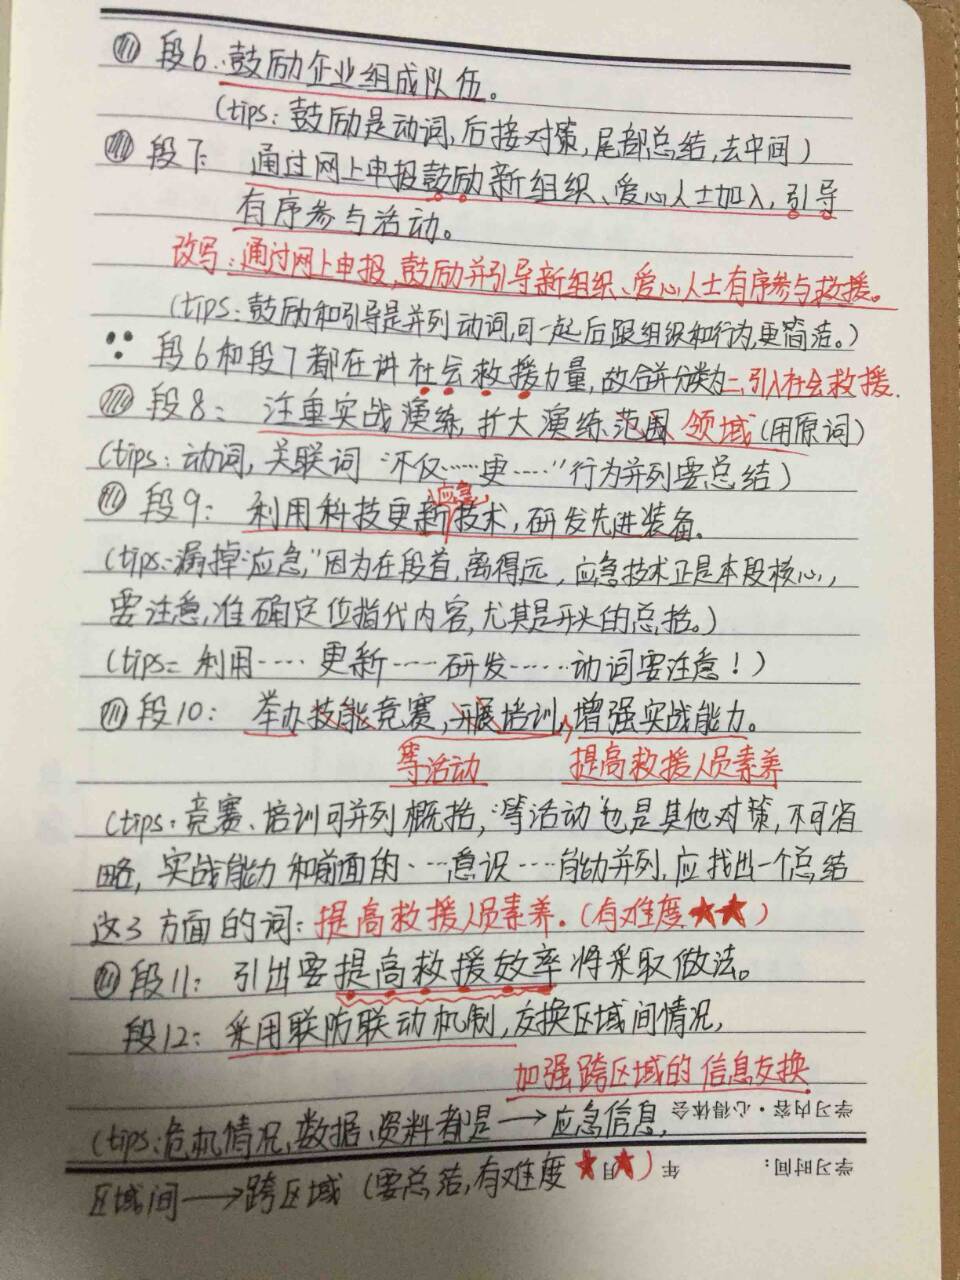 段6:鼓励企业组成队伍。
(tips:鼓励是动词,后接对策,尾部总结,去中间)
段7: 通过网上申报鼓励新组织、爱心人士加入,引导
有序参与活动。
改写:通过网上申报,鼓励并引导新组织、爱心人士有序参与救援。
(tips:鼓励和引导是并列动词,可一起后跟组织和行为,更简洁。)
段6和段7都在讲社会救援力量,故合并分类为二、引入社会救援.
段8: 注重实战演练,扩大演练范围 领域(用原词)
(tips:动词,关联词“不仅……更……”行为并列要总结)
应急
段9: 利用科技更新技术,研发先进装备.
(tips:漏掉“应急”,因为在段首,离得远,应急技术正是本段核心,
要注意,准确定位指代内容,尤其是开头的总括。)
(tips= 利用…… 更新…… 研发…… 动词要注意!)
段10: 举办技能竞赛,开展培训,增强实战能力。
等活动 提高救援人员素养
(tips:竞赛、培训可并列概括,“等活动”也是其他对策,不可省
略,实战能力和前面的……意识……能力并列,应找出一个总结
这3方面的词:提高救援人员素养.(有难度★★)
段11: 引出要提高救援效率将采取做法。
段12: 采用联防联动机制,交换区域间情况,
加强跨区域的信息交换
学习内容·心得体会
(tips:危机情况、数据、资料都是→应急信息,
学习时间: 年 月
区域间→跨区域(要总结,有难度★★)